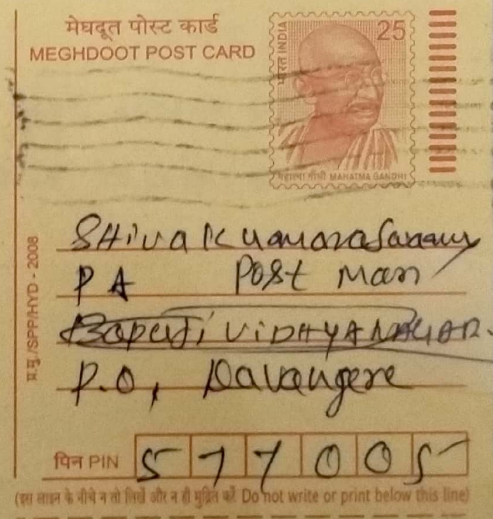 मेघदूत पोस्ट कार्ड
MEGHDOOT POST CARD
25
भारत INDIA
महात्मा गाँधी MAHATMA GANDHI
प्र.मु./SPP/HYD - 2008
SHivakumaraswamy
PA Post Man
Bapuji ViDHYANAGAR.
P.O, Davangere
पिन PIN 577005
(इस लाइन के नीचे न तो लिखें और न ही मुद्रित करें Do not write or print below this line)